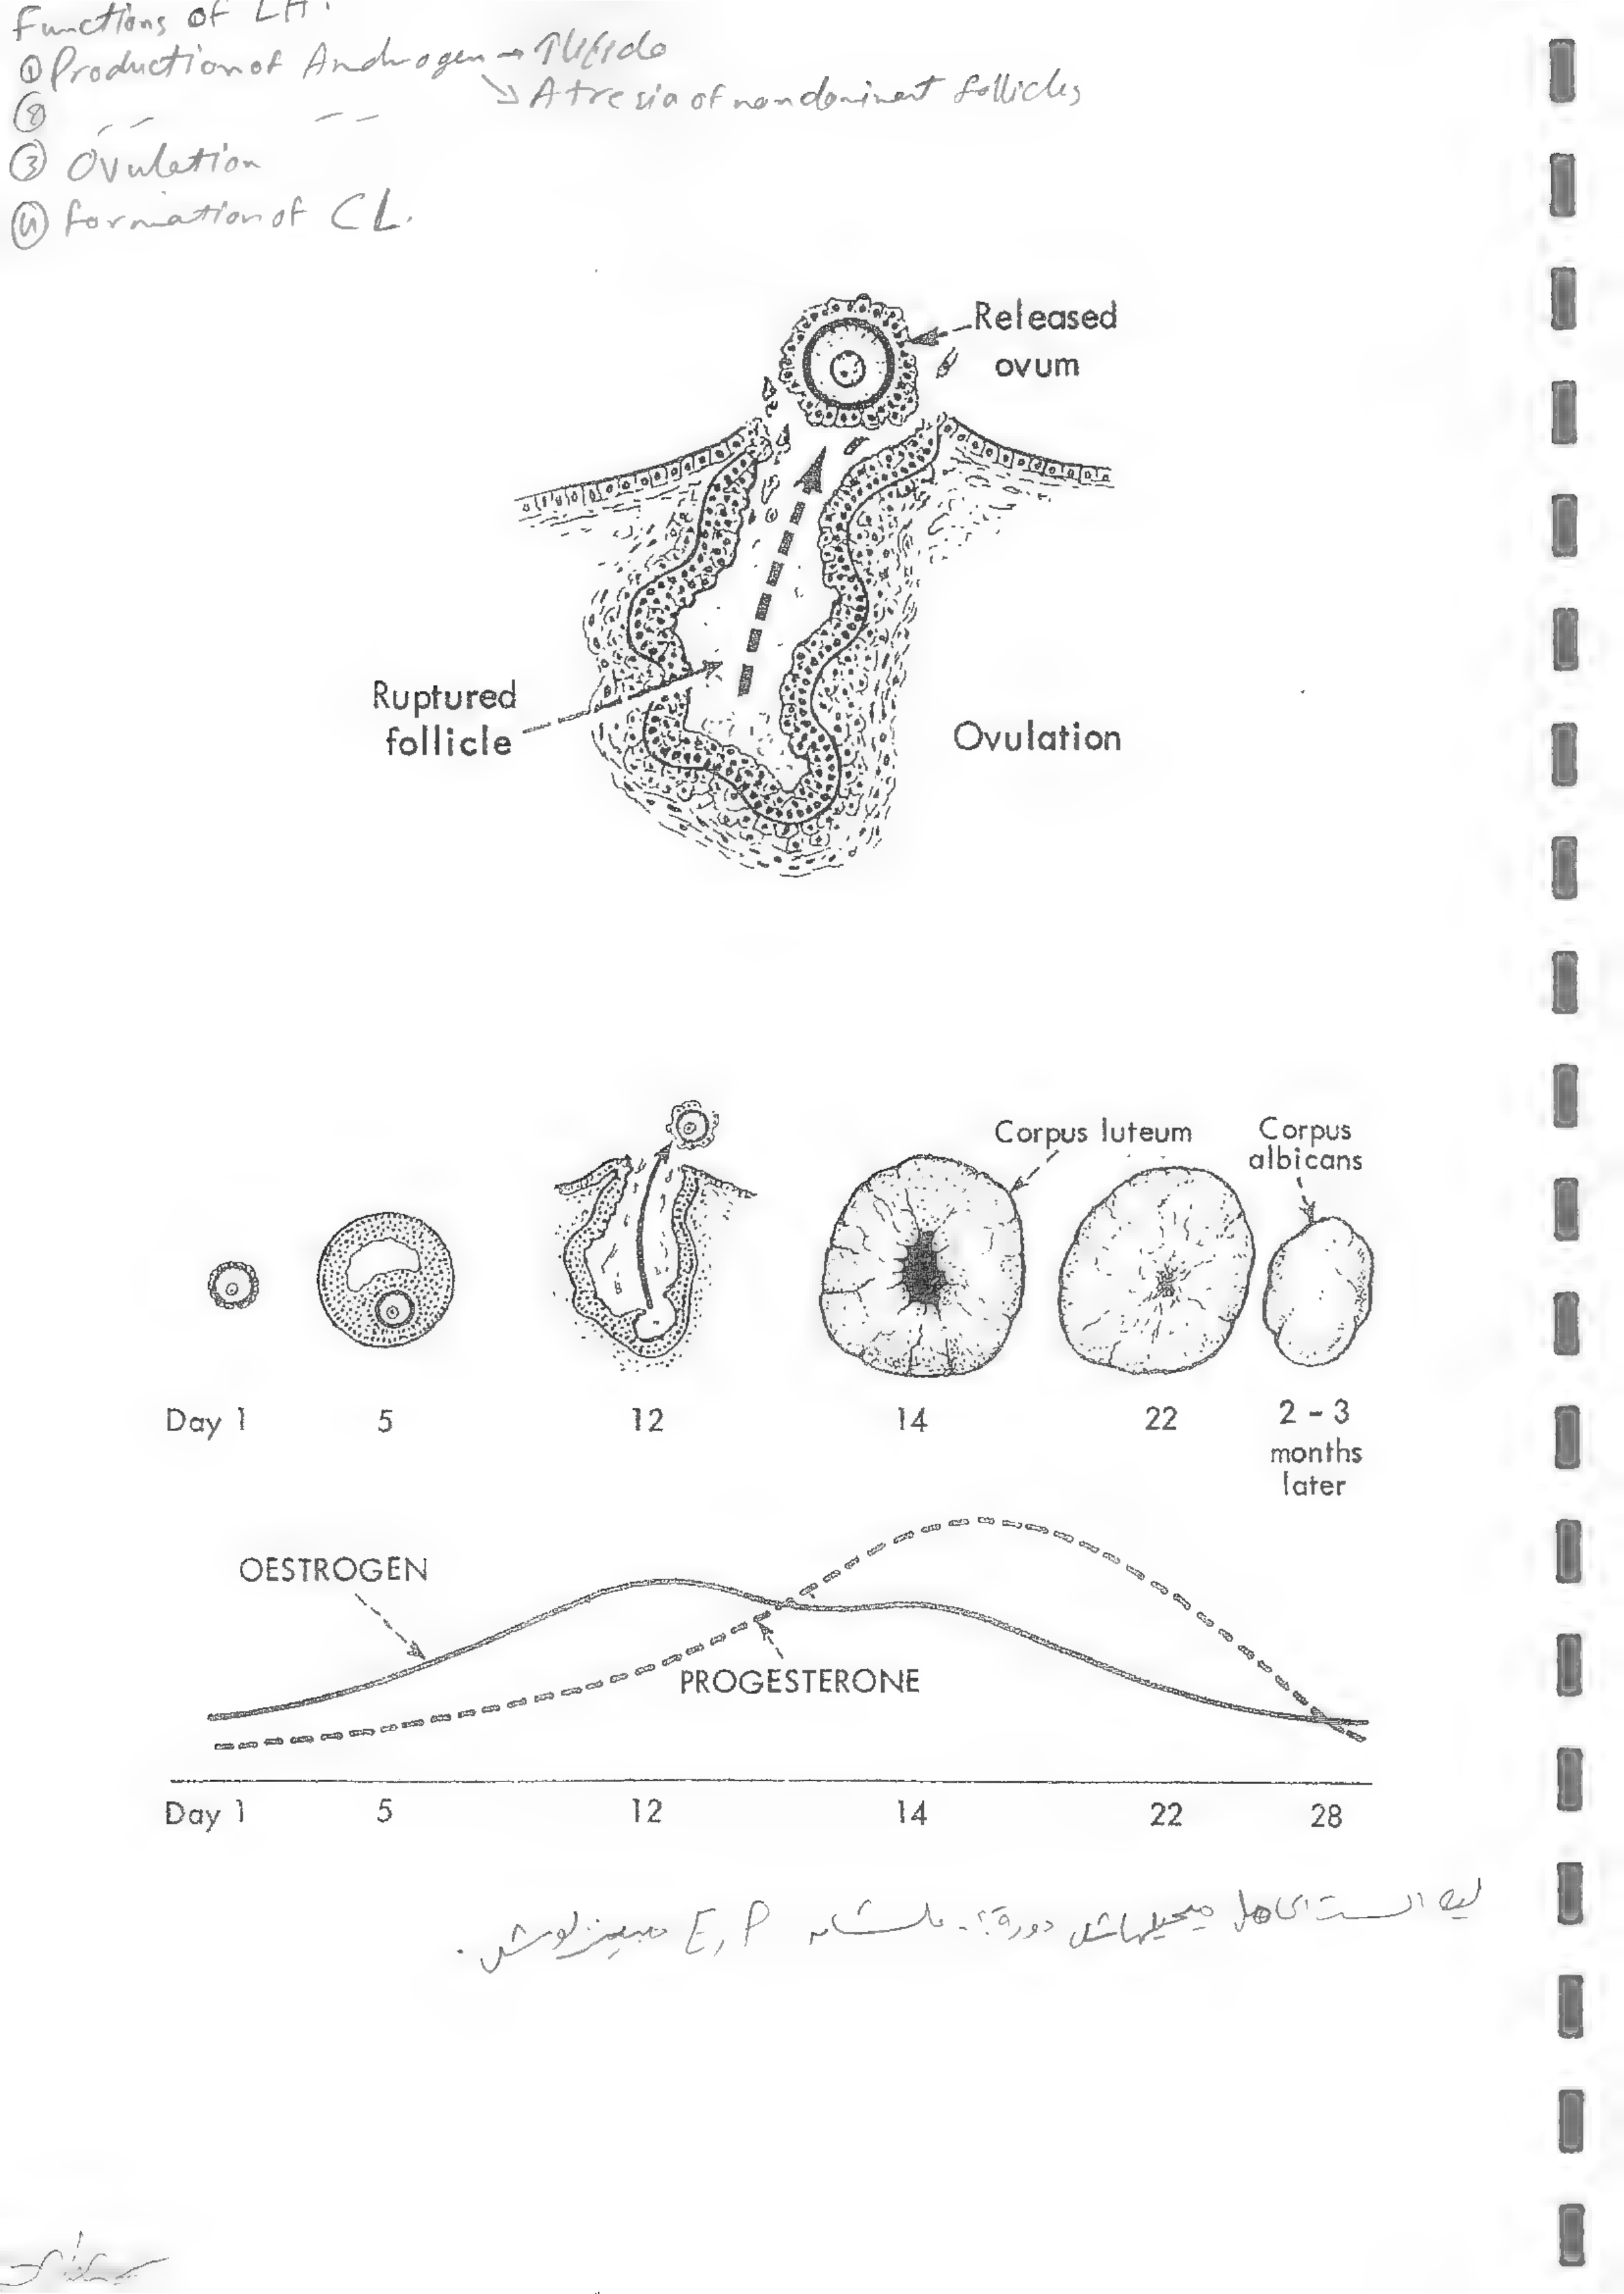 Functions of LH.
① Production of Androgen → ↑libido
↘ Atresia of nondominent follicles
②
③ Ovulation
④ formation of CL.
Released
ovum
Ruptured
follicle
Ovulation
Corpus luteum
Corpus
albicans
Day 1 5 12 14 22 2 - 3
months
later
OESTROGEN
PROGESTERONE
Day 1 5 12 14 22 28
ليه الست الحامل مبيجيلهاش دورة؟ علشان E, P مبينزلوش.